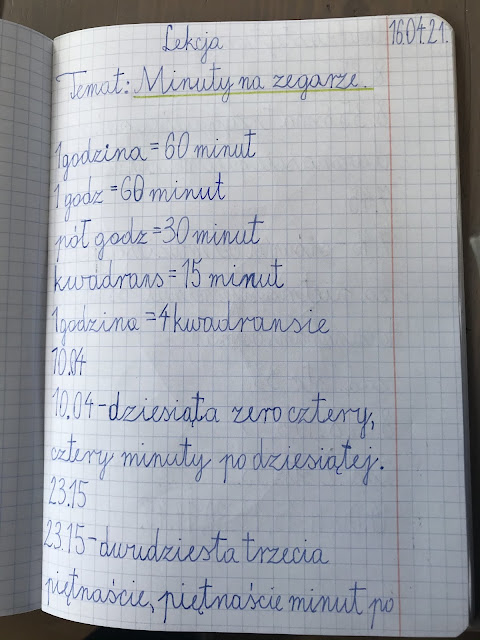 Lekcja 16.04.21.
Temat: Minuty na zegarze.
1 godzina = 60 minut
1 godz = 60 minut
pół godz = 30 minut
kwadrans = 15 minut
1 godzina = 4 kwadransie
10.04
10.04 - dziesiąta zero cztery,
cztery minuty po dziesiątej.
23.15
23.15 - dwudziesta trzecia
piętnaście, piętnaście minut po